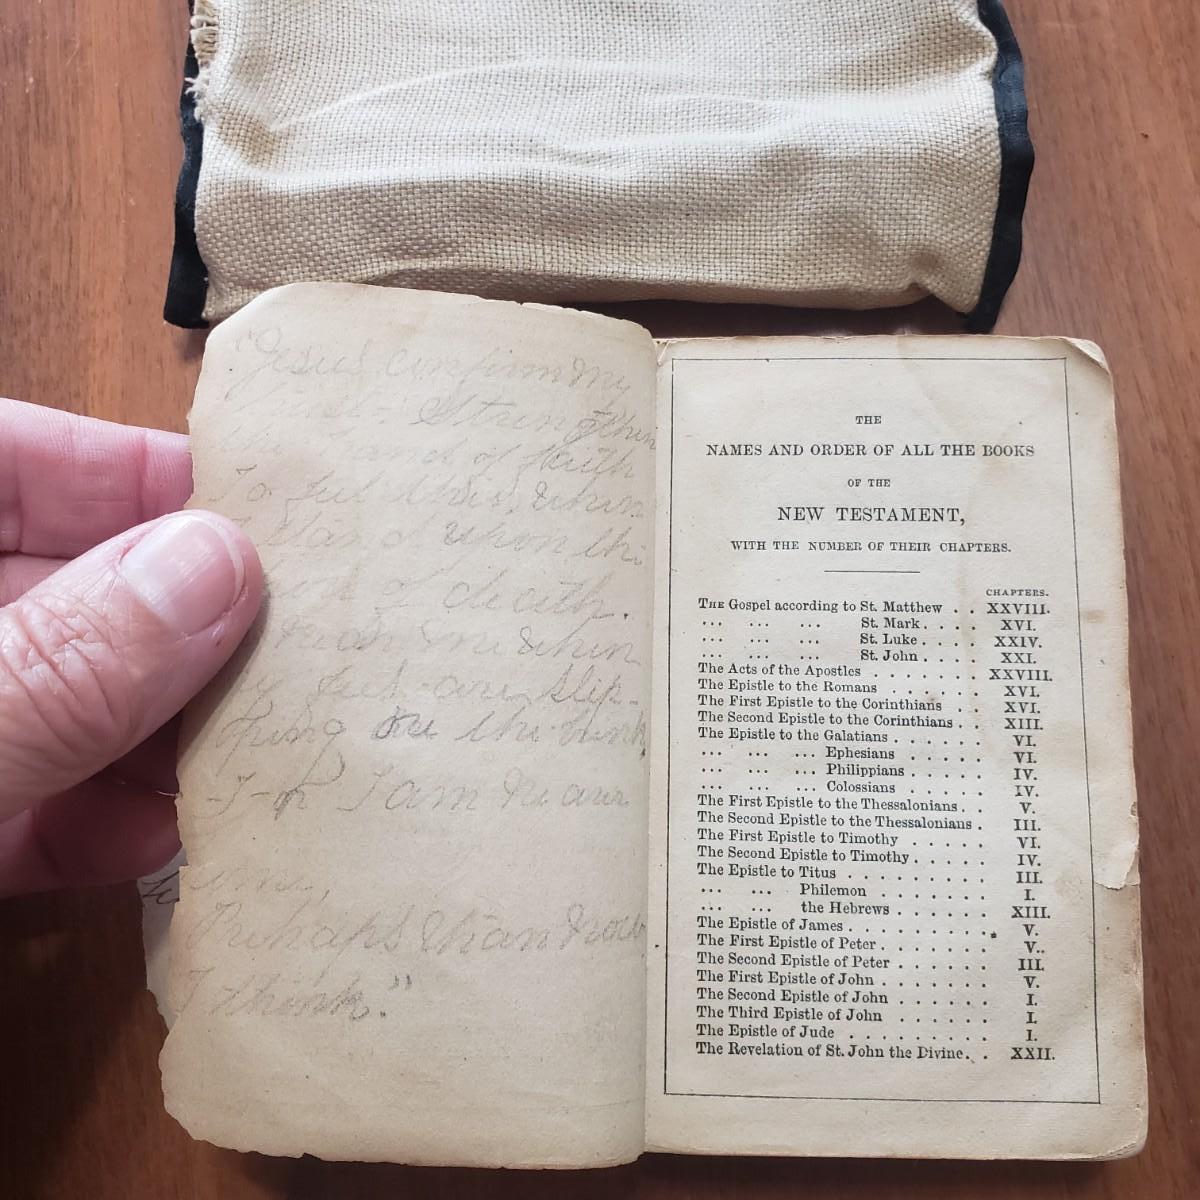 "Jesus confirm my
trust- Strengthen
the hand of faith
To feel thee, when
Stand upon the
of death.
near me when
my feet are slip-
ping on the brink
For I am nearer
home,
Perhaps than now
I think."
THE
NAMES AND ORDER OF ALL THE BOOKS
OF THE
NEW TESTAMENT,
WITH THE NUMBER OF THEIR CHAPTERS.
CHAPTERS.
THE Gospel according to St. Matthew . . XXVIII.
... ... ... St. Mark . . . . XVI.
... ... ... St. Luke . . . . XXIV.
... ... ... St. John . . . . XXI.
The Acts of the Apostles . . . . . . . XXVIII.
The Epistle to the Romans . . . . . . XVI.
The First Epistle to the Corinthians . . . XVI.
The Second Epistle to the Corinthians . . XIII.
The Epistle to the Galatians . . . . . . VI.
... ... ... Ephesians . . . . . VI.
... ... ... Philippians . . . . IV.
... ... ... Colossians . . . . IV.
The First Epistle to the Thessalonians . . V.
The Second Epistle to the Thessalonians . III.
The First Epistle to Timothy . . . . . VI.
The Second Epistle to Timothy . . . . . IV.
The Epistle to Titus . . . . . . . . . III.
... ... Philemon . . . . . . I.
... ... the Hebrews . . . . . . XIII.
The Epistle of James . . . . . . . . . V.
The First Epistle of Peter . . . . . . . V.
The Second Epistle of Peter . . . . . . III.
The First Epistle of John . . . . . . . V.
The Second Epistle of John . . . . . . I.
The Third Epistle of John . . . . . . I.
The Epistle of Jude . . . . . . . . . I.
The Revelation of St. John the Divine. . XXII.